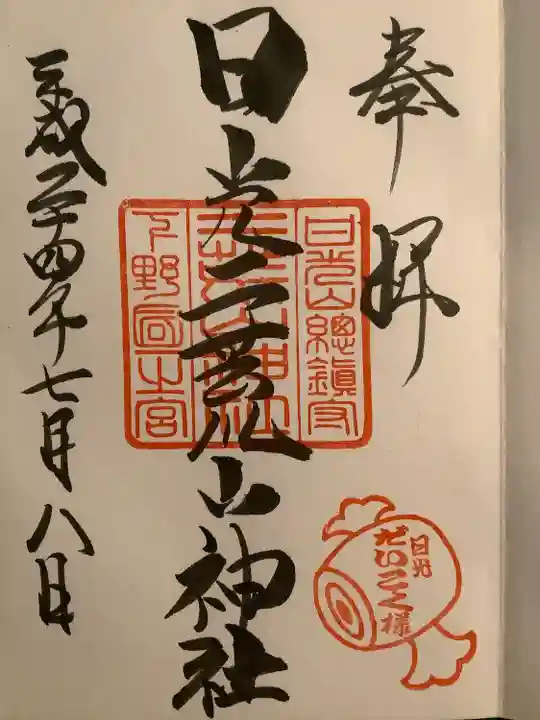 奉拝
日光山總鎮守
日光二荒山神社
二荒山神社
下野國一之宮
平成二十四年七月八日
日光
だいこく様